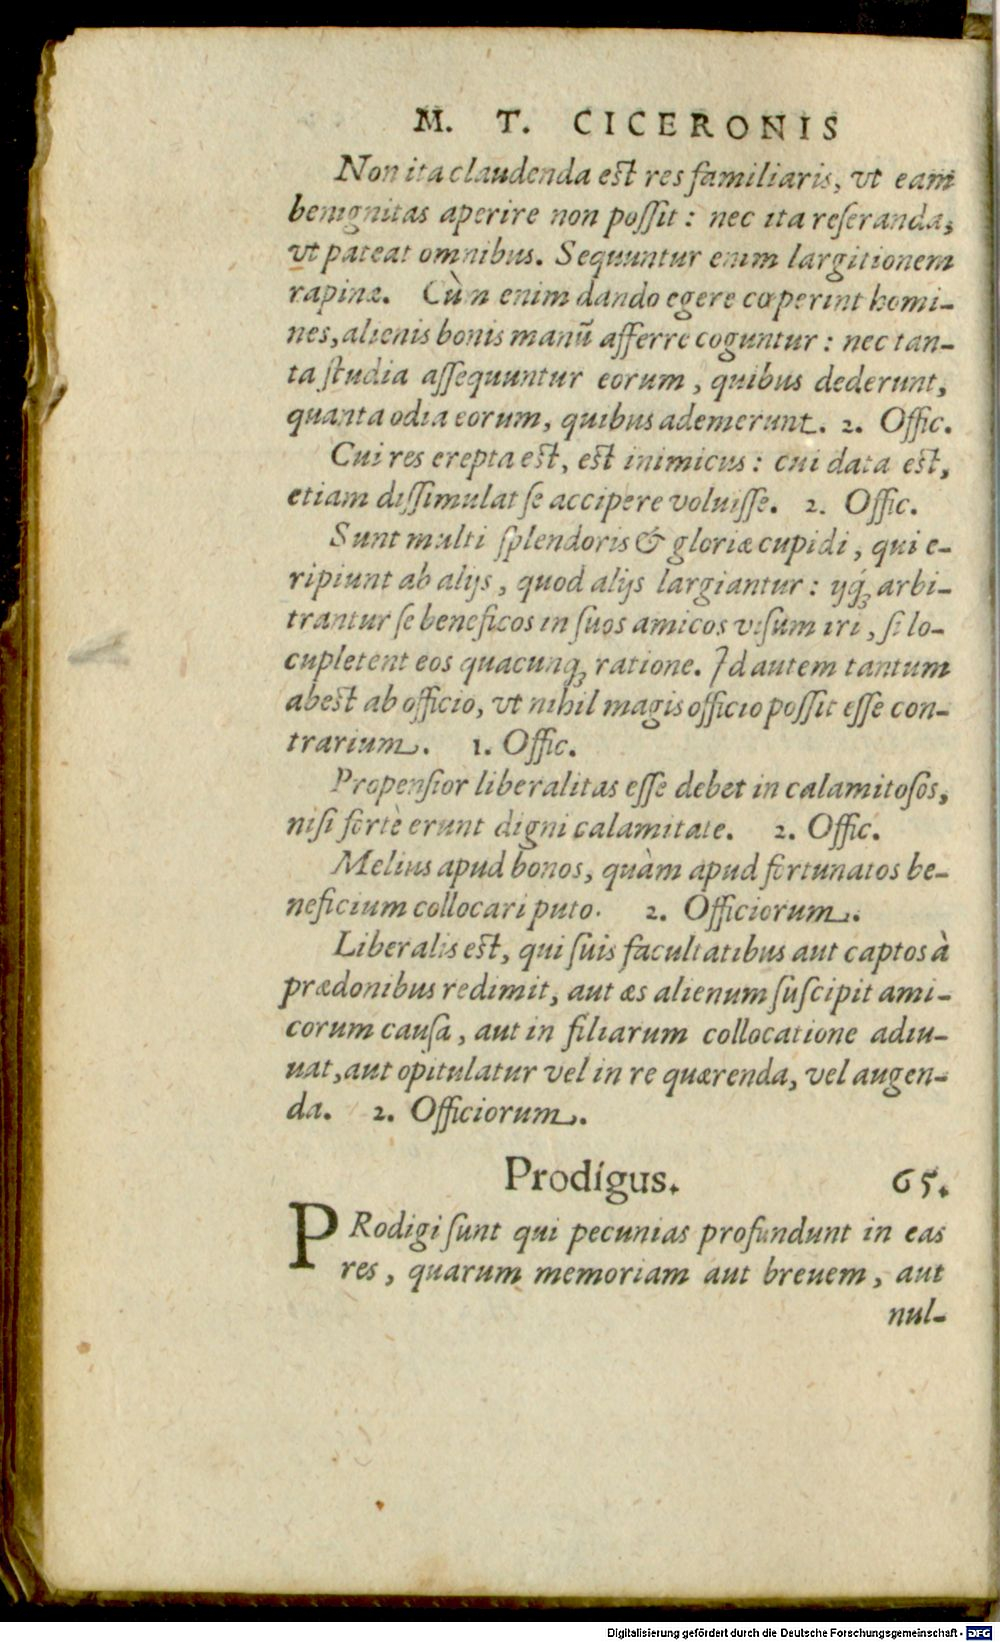 M. T. CICERONIS
Non ita claudenda est res familiaris, vt eam
benignitas aperire non poſſit : nec ita reſeranda,
vt pateat omnibus. Sequuntur enim largitionem
rapinæ. Cùm enim dando egere cœperint homi-
nes, alienis bonis manū afferre coguntur : nec tan-
ta ſtudia aſſequuntur eorum, quibus dederunt,
quanta odia eorum, quibus ademerunt. 2. Offic.
Cui res erepta est, est inimicus : cui data est,
etiam diſſimulat ſe accipere voluiſſe. 2. Offic.
Sunt multi ſplendoris & gloriæ cupidi, qui e-
ripiunt ab alijs, quod alijs largiantur : ijq́ꝫ arbi-
trantur ſe beneficos in ſuos amicos viſum iri, ſi lo-
cupletent eos quacunqꝫ ratione. Id autem tantum
abest ab officio, vt nihil magis officio poſſit eſſe con-
trarium. 1. Offic.
Propenſior liberalitas eſſe debet in calamitoſos,
niſi fortè erunt digni calamitate. 2. Offic.
Melius apud bonos, quàm apud fortunatos be-
neficium collocari puto. 2. Officiorum.
Liberalis est, qui ſuis facultatibus aut captos à
prædonibus redimit, aut æs alienum ſuſcipit ami-
corum cauſa, aut in filiarum collocatione adiu-
uat, aut opitulatur vel in re quærenda, vel augen-
da. 2. Officiorum.
Prodígus. 65.
PRodigi ſunt qui pecunias profundunt in eas
res, quarum memoriam aut breuem, aut
nul-
Digitalisierung gefördert durch die Deutsche Forschungsgemeinschaft - DFG